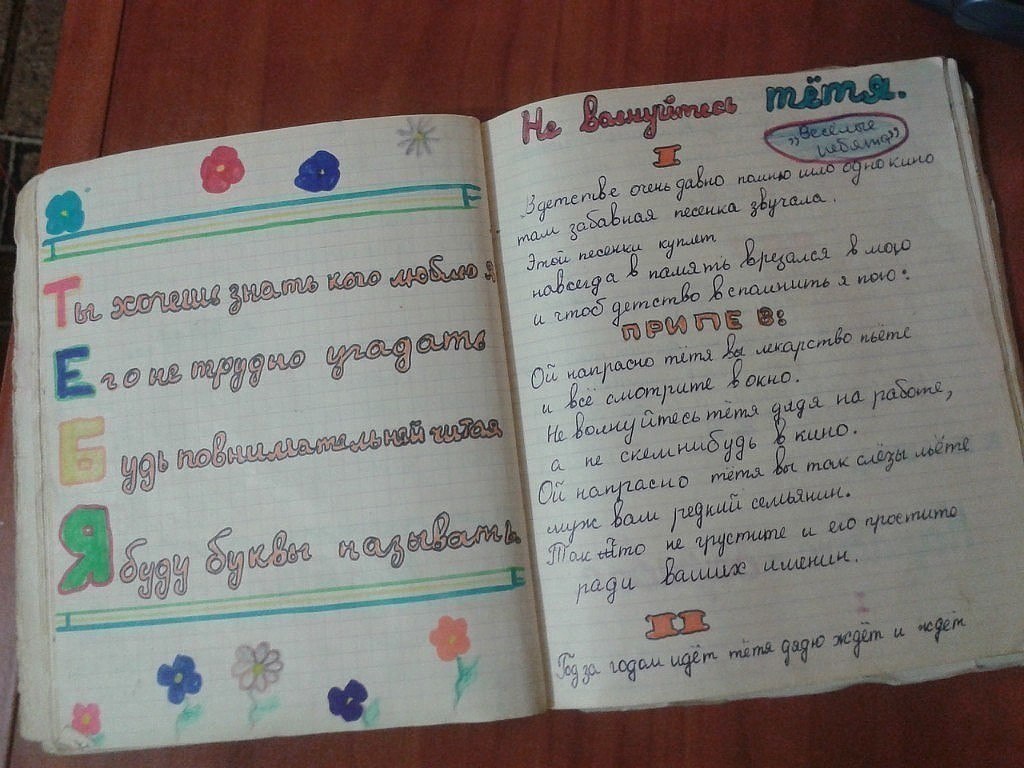 Ты хочешь знать кого люблю я
Его не трудно угадать
Будь повнимательней читая
Я буду буквы называть
Не волнуйтесь тётя.
„Весёлые
ребята”
I
В детстве очень давно помню шло одно кино
там забавная песенка звучала.
Этой песенки куплет
навсегда в память врезался в мою
и чтоб детство вспомнить я пою:
ПРИПЕВ:
Ой напрасно тётя вы лекарство пьёте
и всё смотрите в окно.
Не волнуйтесь тётя дядя на работе,
а не скемнибудь в кино.
Ой напрасно тётя вы так слёзы льёте
муж вам редкий семьянин.
Так что не грустите и его простите
ради ваших именин.
II
Год за годом идёт тётя дядю ждёт и ждёт